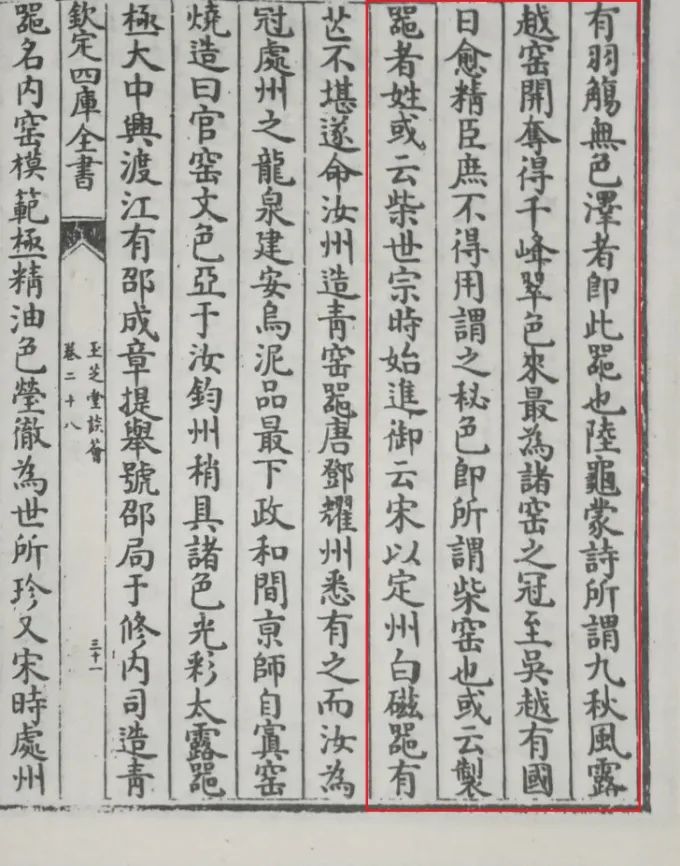 有羽觴無色澤者即此噐也陸龜蒙詩所謂九秋風露
越窑開奪得千峰翠色來最為諸窑之冠至吳越有國
日愈精臣庶不得用謂之秘色即所謂柴窑也或云製
噐者姓或云柴世宗時始進御云宋以定州白磁噐有
芒不堪遂命汝州造青窑噐唐鄧耀州悉有之而汝為
冠處州之龍泉建安烏泥品最下政和間亰師自寘窑
燒造曰官窑文色亞于汝鈞州稍具諸色光彩太露噐
極大中興渡江有邵成章提舉號邵局于修内司造青
欽定四庫全書
玉芝堂談薈
卷二十八
三十一
噐名内窑模範極精油色瑩徹為世所珍又宋時處州